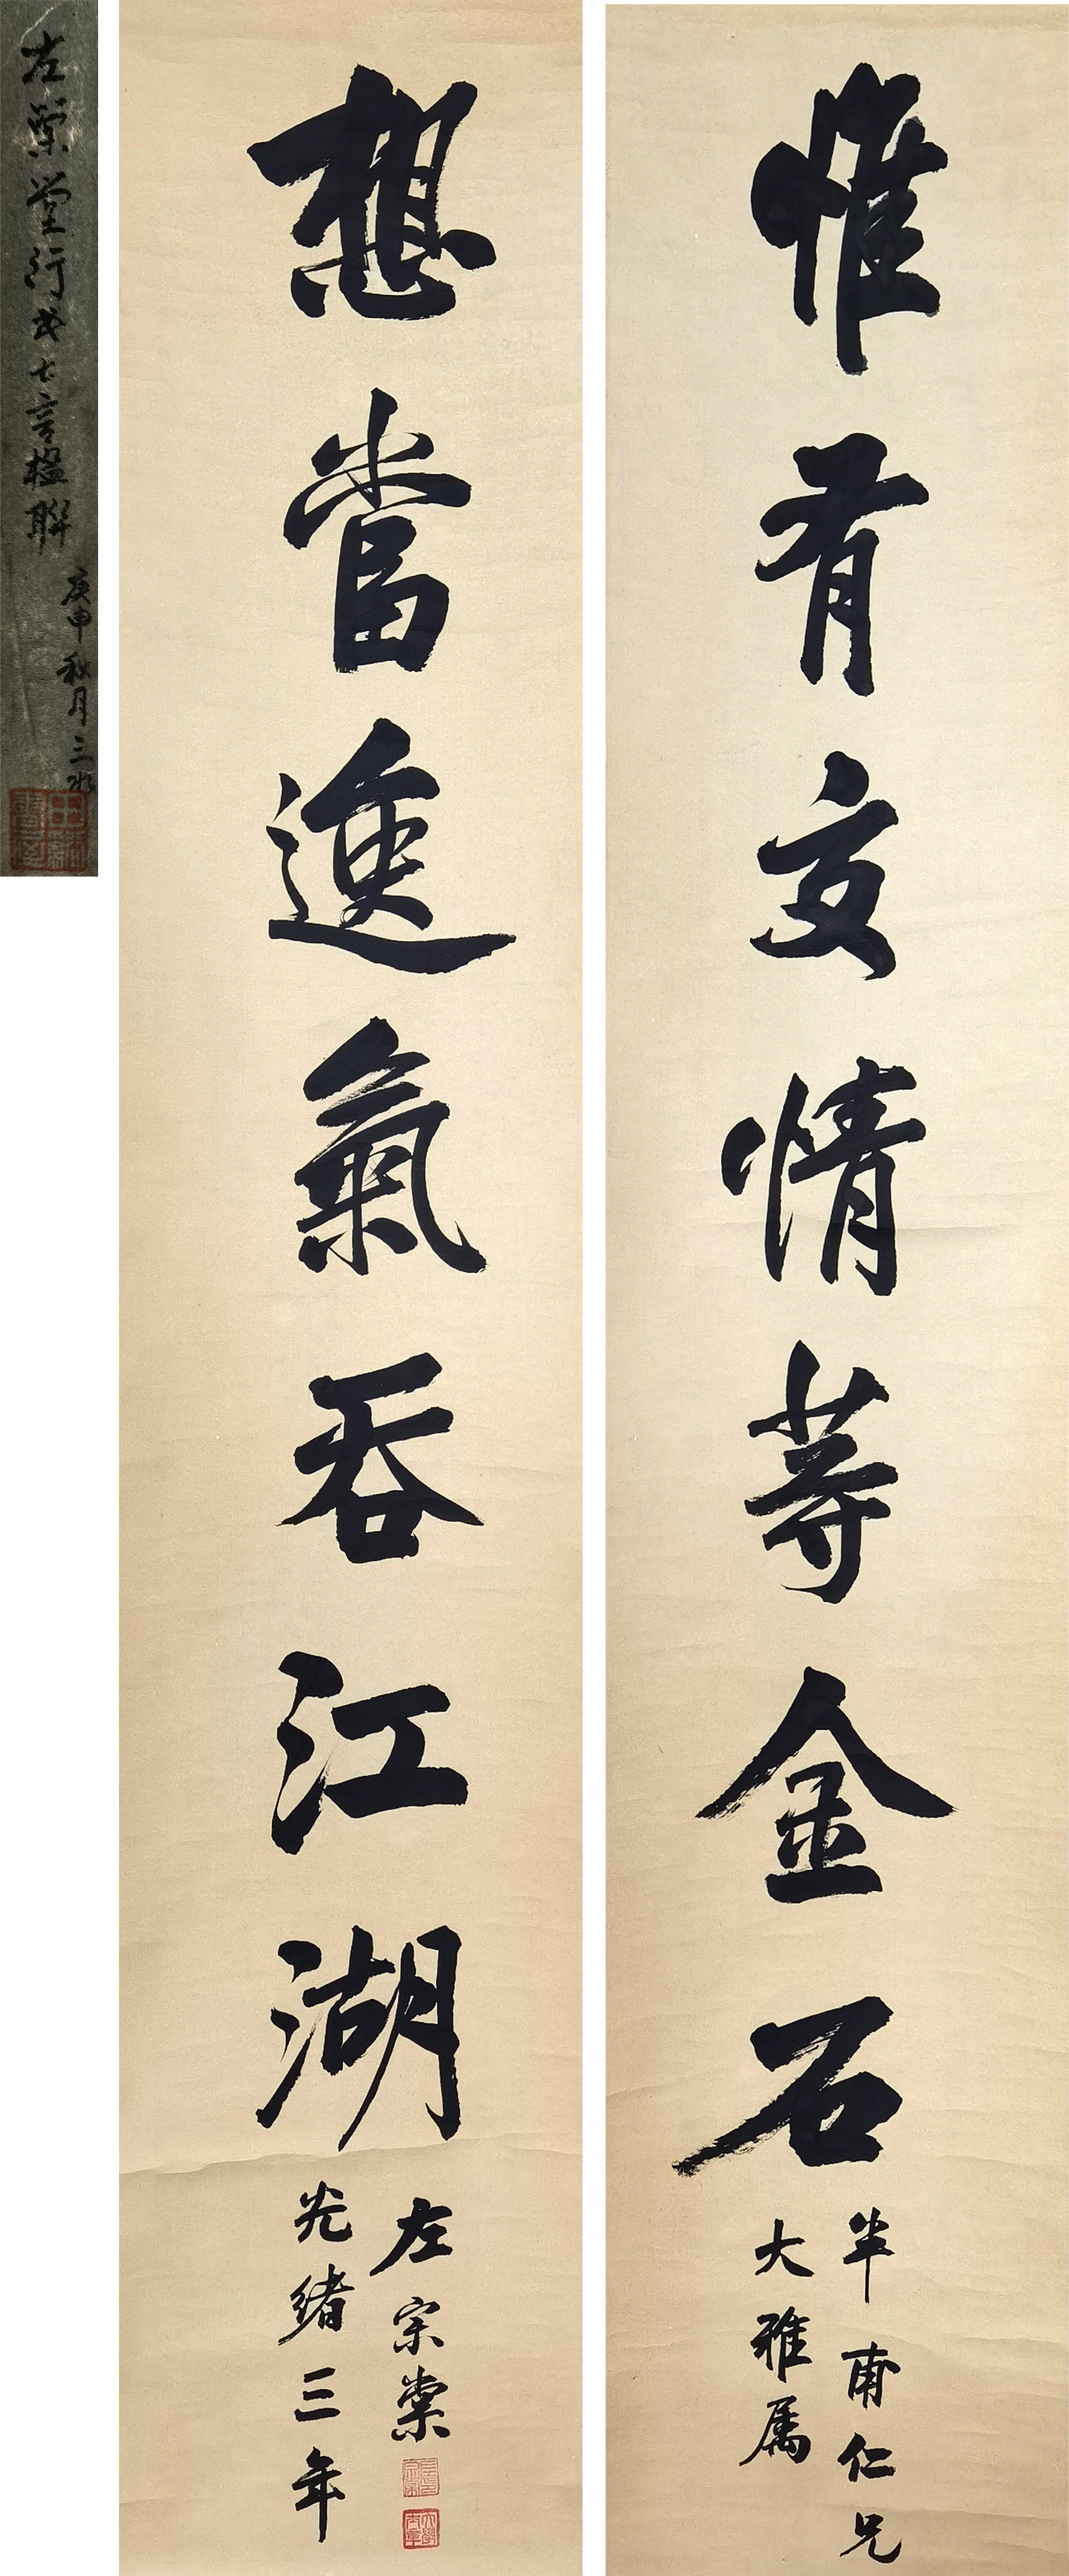 惟有交情等金石
半甫仁兄
大雅属
想當逸氣吞江湖
左宗棠
光緒三年
左堂行书七言楹聯
庚申秋月三水